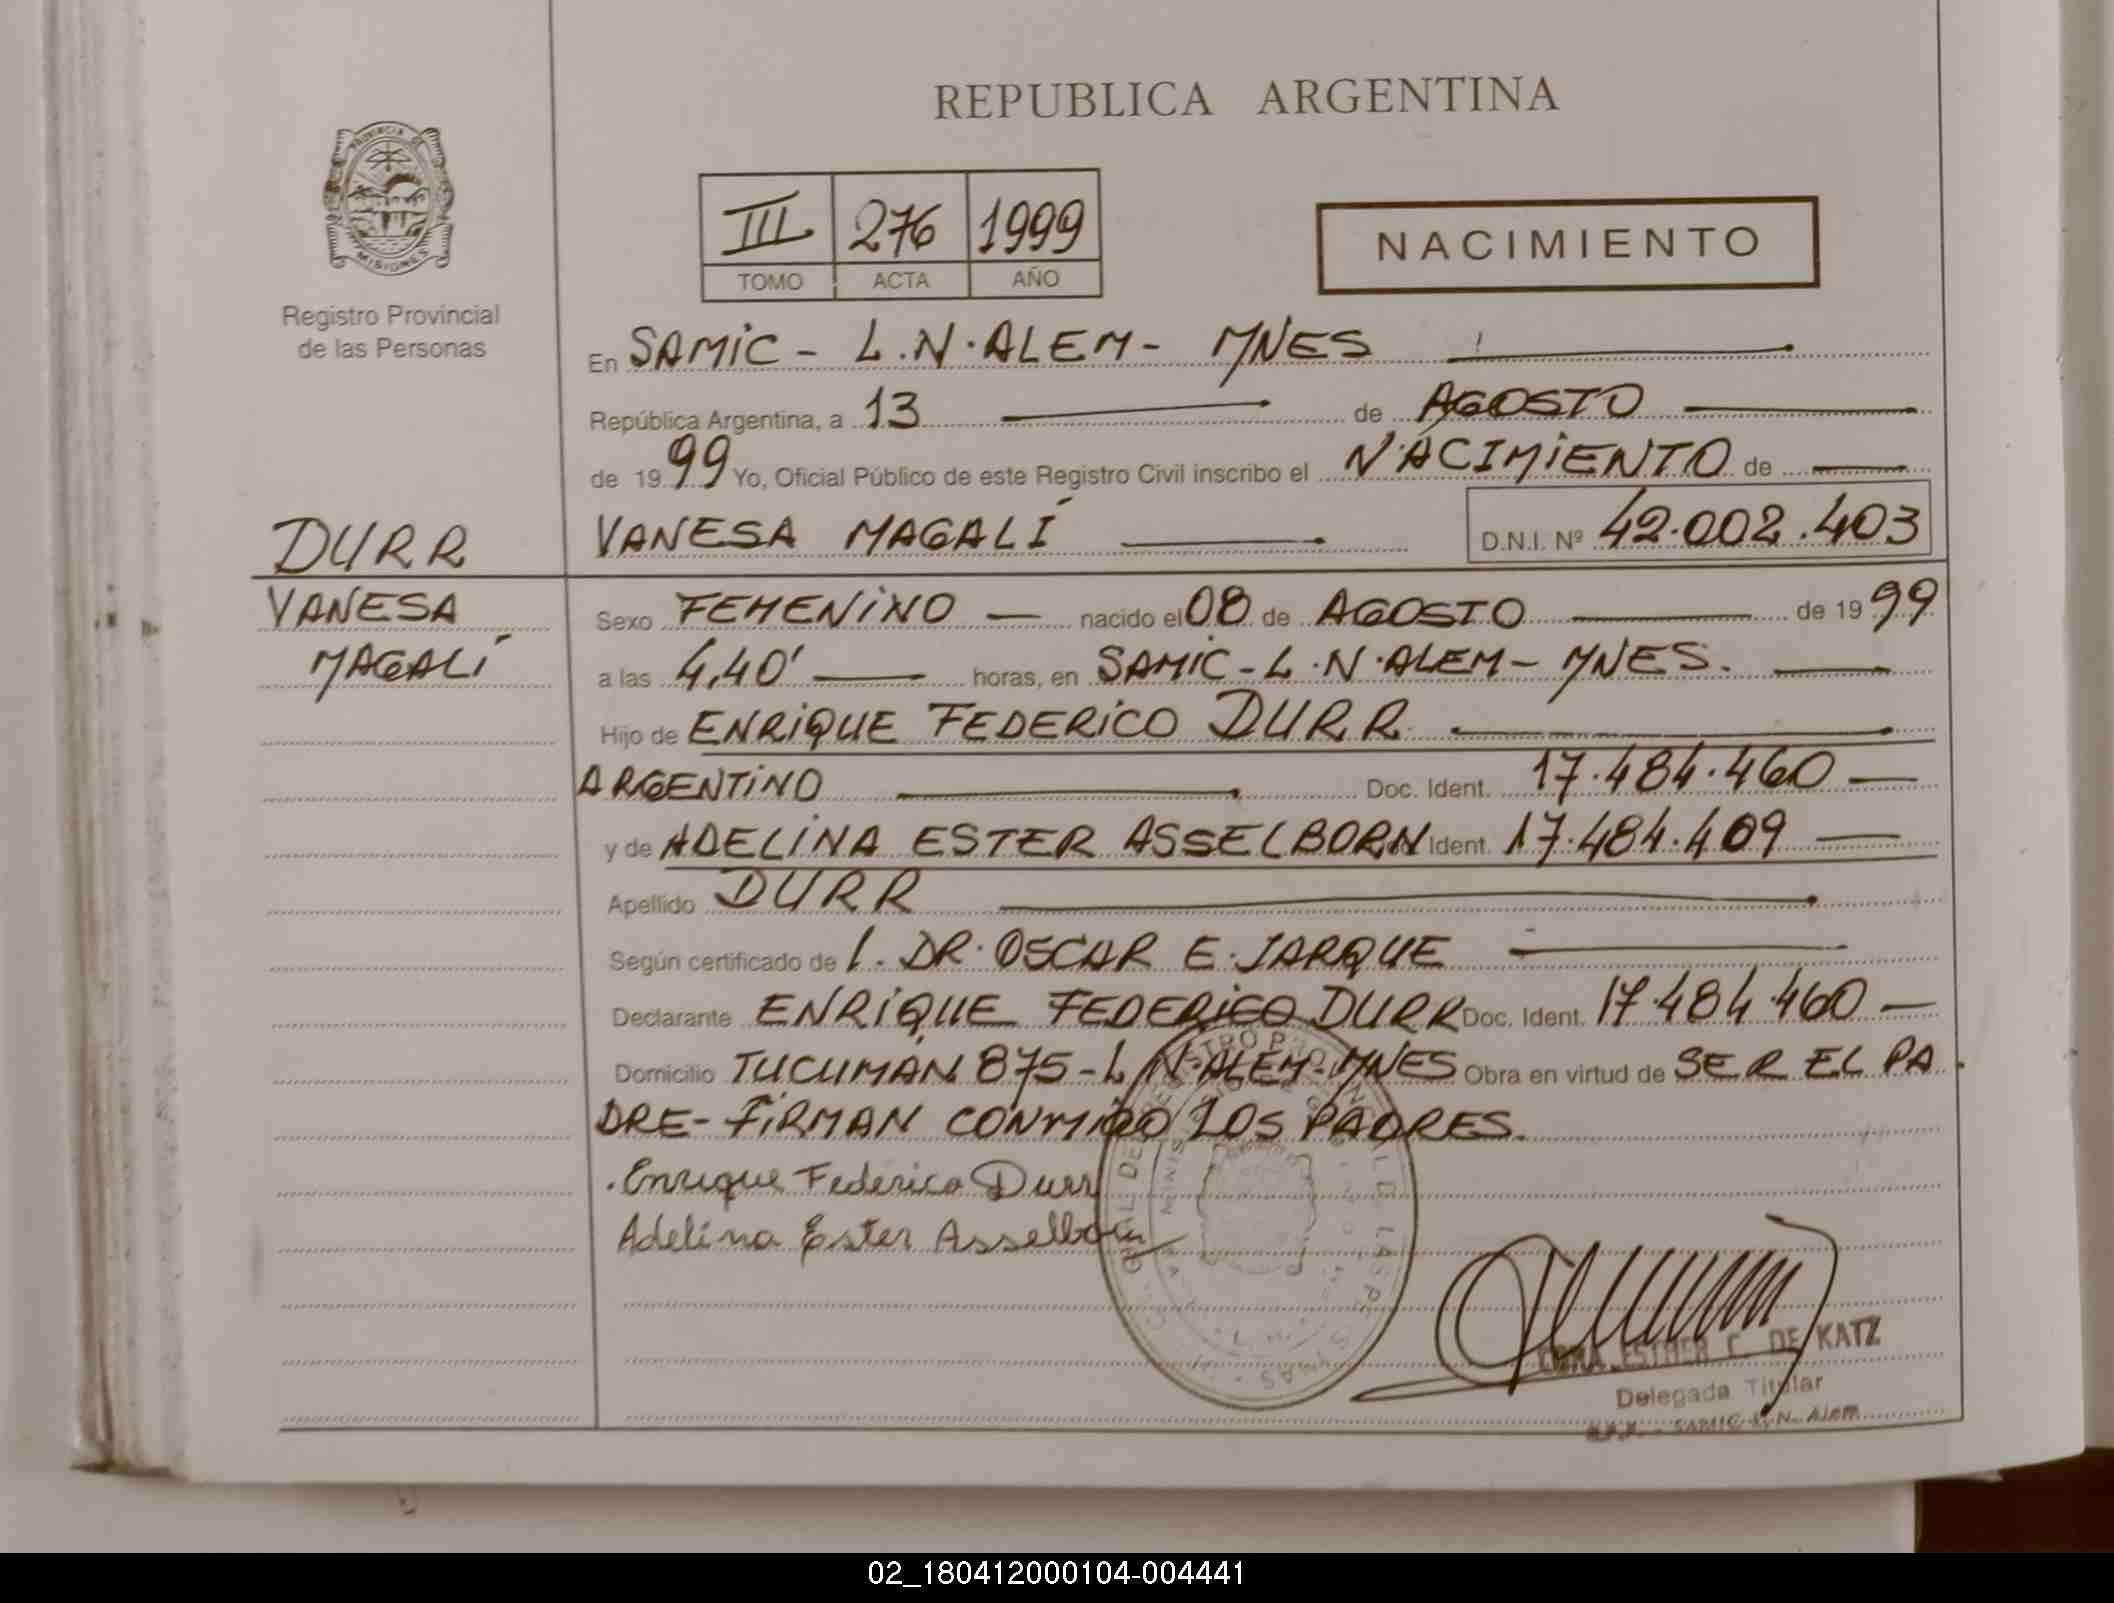 REPUBLICA ARGENTINA
PROVINCIA DE MISIONES
Registro Provincial
de las Personas
III 276 1999
TOMO ACTA AÑO
NACIMIENTO
En SAMIC - L.N.ALEM - MNES
República Argentina, a 13 de AGOSTO
de 1999 Yo, Oficial Público de este Registro Civil inscribo el NACIMIENTO de
VANESA MAGALÍ D.N.I. Nº 42.002.403
DURR
VANESA
MAGALÍ
Sexo FEMENINO nacido el 08 de AGOSTO de 1999
a las 4,40' horas, en SAMIC - L.N.ALEM - MNES.
Hijo de ENRIQUE FEDERICO DURR
ARGENTINO Doc. Ident. 17.484.460
y de ADELINA ESTER ASSELBORN Ident. 17.484.409
Apellido DURR
Según certificado de 1. DR. OSCAR E. JARQUE
Declarante ENRIQUE FEDERICO DURR Doc. Ident. 17.484.460
Domicilio TUCUMÁN 875 - L.N.ALEM - MNES Obra en virtud de SER EL PA
DRE - FIRMAN CONMIGO LOS PADRES.
Enrique Federico Durr
Adelina Ester Asselborn
ESTHER C. DE KATZ
Delegada Titular
SAMIC L.N. Alem
02_180412000104-004441